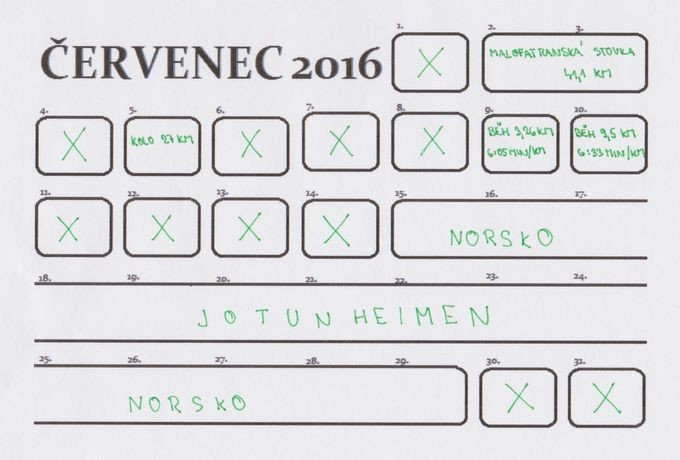 ČERVENEC 2016
1. 2. 3.
X MALOFATRANSKÁ STOVKA
41,1 KM
4. 5. 6. 7. 8. 9. 10.
X KOLO 27 KM X X X BĚH 3,26 KM BĚH 9,5 KM
6:05 MIN/KM 6:33 MIN/KM
11. 12. 13. 14. 15. 16. 17.
X X X X NORSKO
18. 19. 20. 21. 22. 23. 24.
JOTUNHEIMEN
25. 26. 27. 28. 29. 30. 31.
NORSKO X X